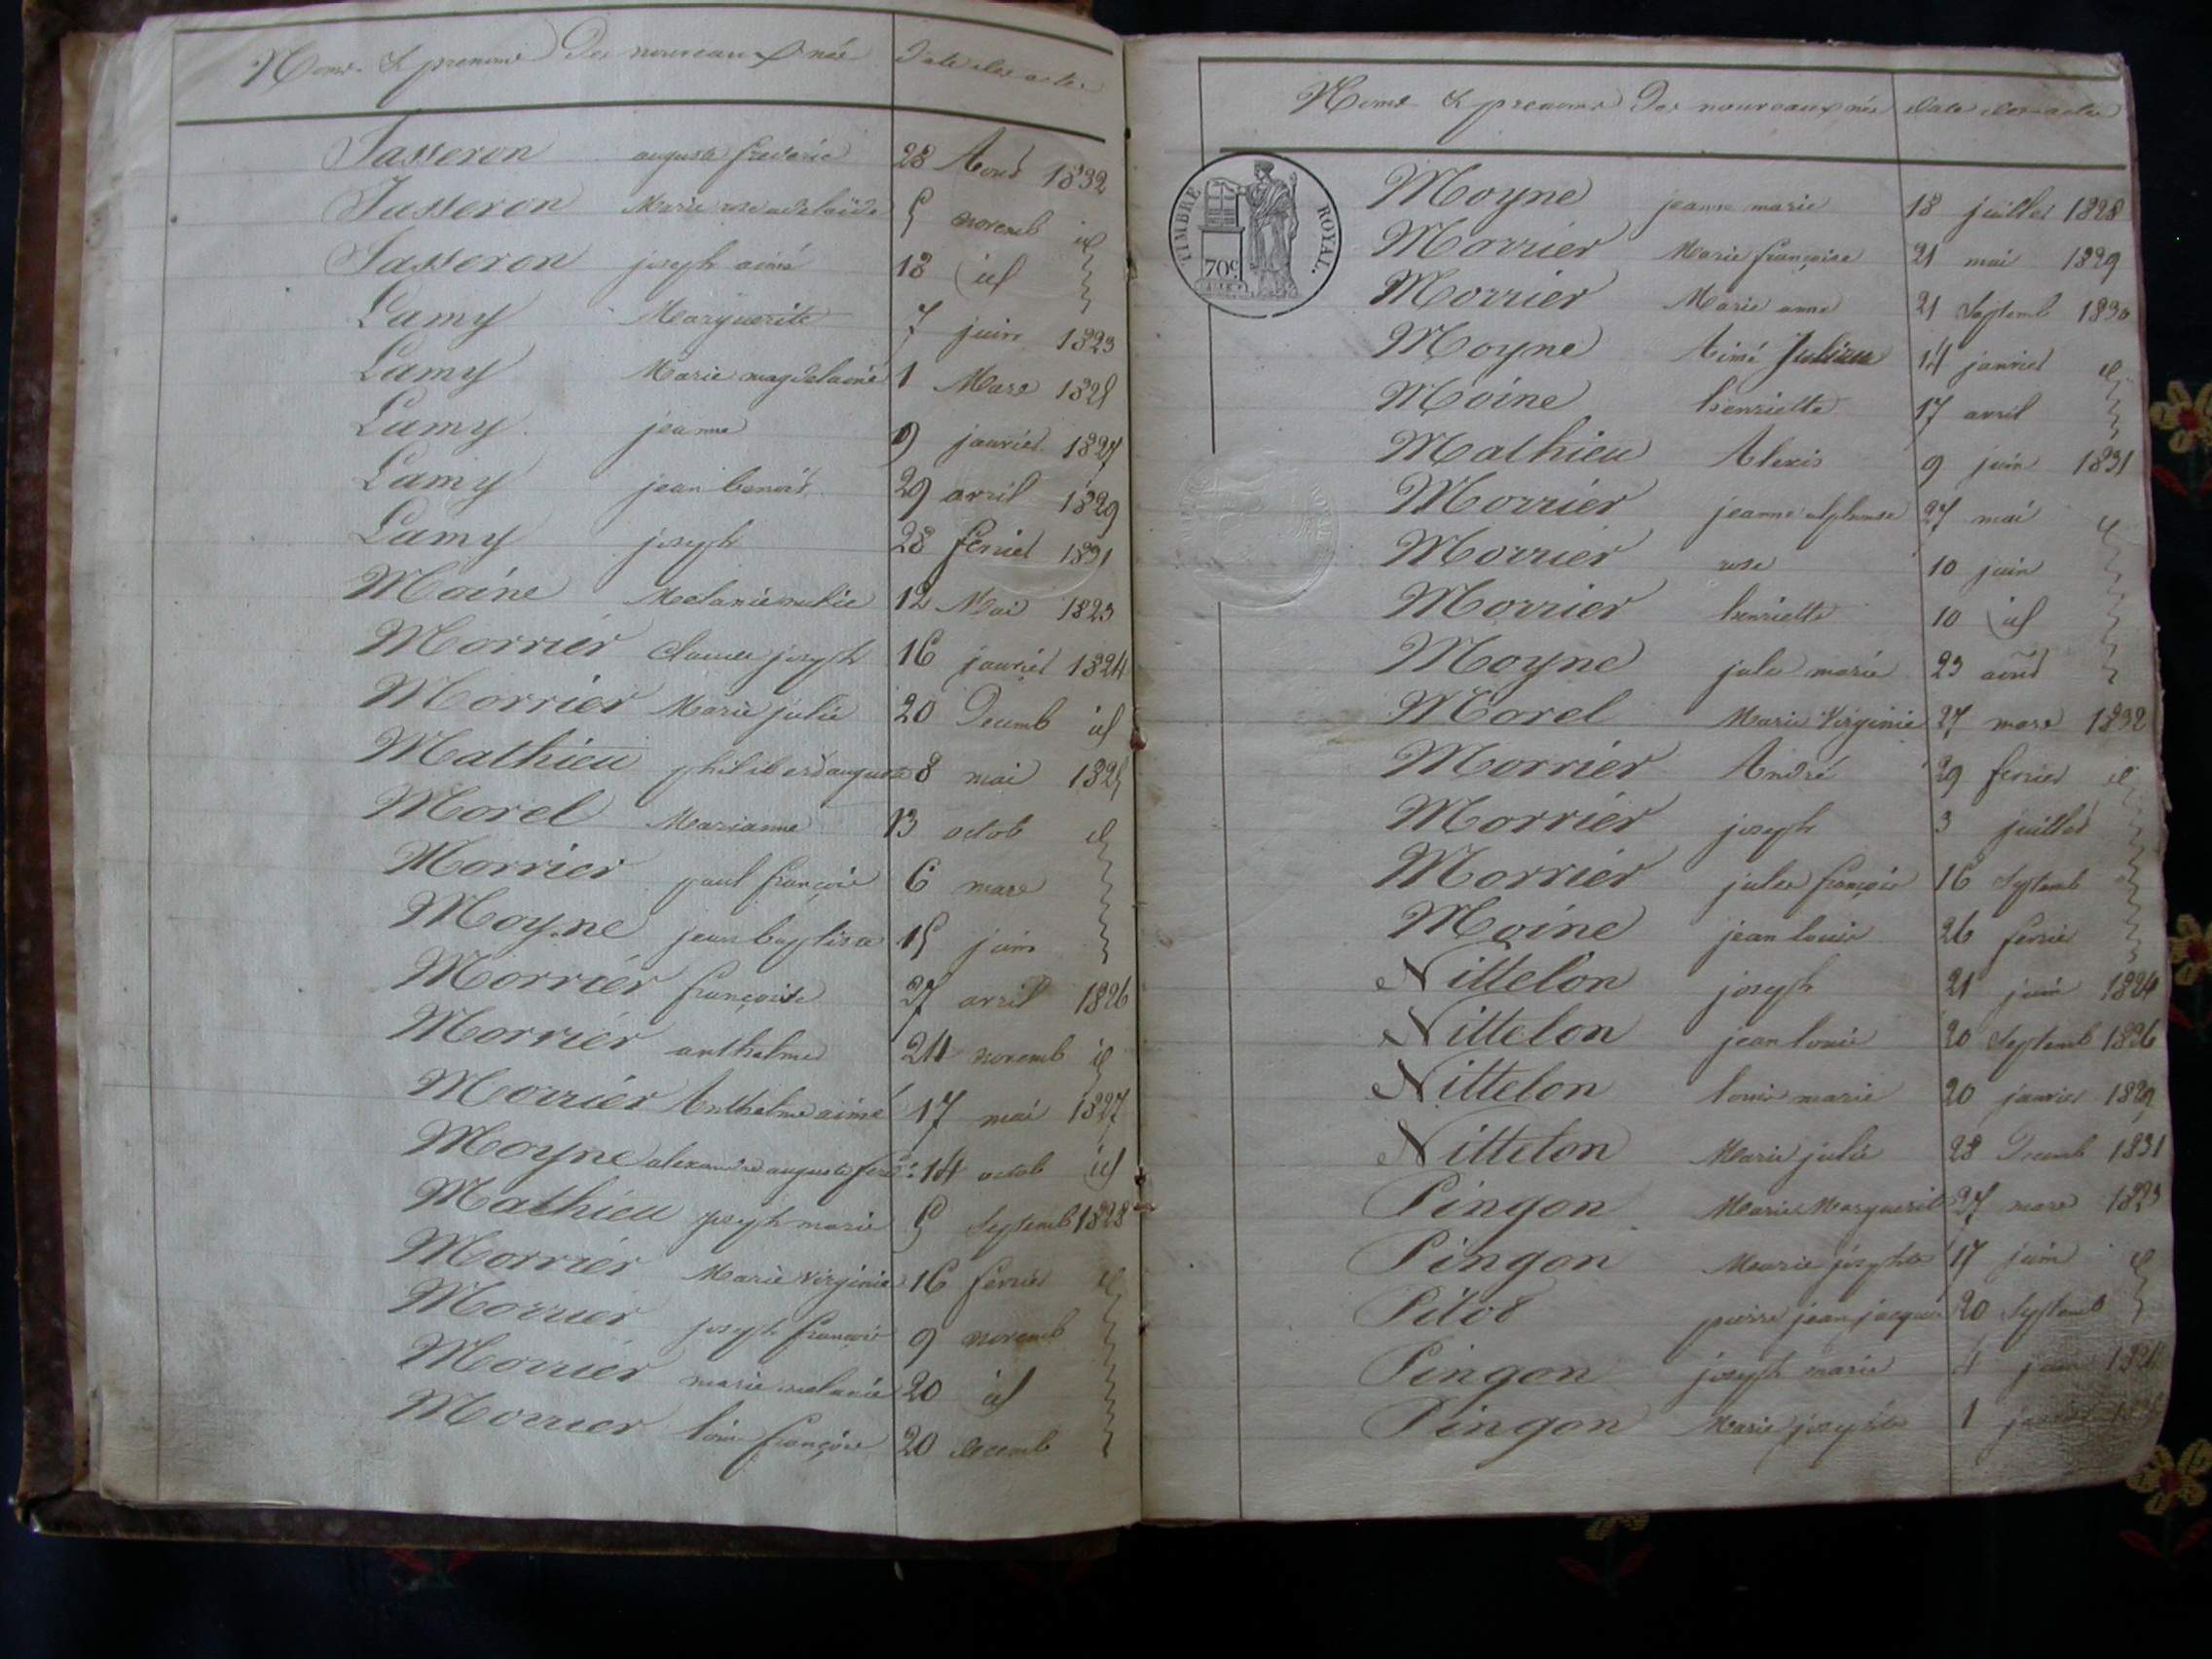 Noms & prenoms Des nouveaux nés Date des actes
Jasseron auguste frederic 28 Aout 1832
Jasseron Marie rose adelaïde 5 novemb id
Jasseron joseph aimé 18 id
Lamy Marguerite 7 juin 1823
Lamy Marie magdelaine 1 Mars 1825
Lamy jeanne 9 janvier 1827
Lamy jean benoit 29 avril 1829
Lamy joseph 28 fevrier 1831
Moine Melanie 12 Mai 1823
Morrier Claude joseph 16 janvier 1824
Morrier Marie julie 20 Decemb id
Mathieu philiberd auguste 8 mai 1825
Morel Marianne 13 octob id
Morrier paul françois 6 mars
Moyne jean baptiste 15 juin
Morrier françoise 27 avril 1826
Morrier anthelme 24 novemb id
Morrier Anthelme aimé 17 mai 1827
Moyne alexandre auguste ferd 14 octob id
Mathieu joseph marie 5 Septemb 1828
Morrier Marie Virginie 16 fevrier id
Morrier joseph françois 9 novemb
Morrier marie melanie 20 id
Morrier louis françois 20 decemb
Noms & prenoms Des nouveaux nés Date des actes
TIMBRE ROYAL.
70c
Moyne jeanne marie 18 juillet 1828
Morrier Marie françoise 21 mai 1829
Morrier Marie anne 21 Septemb 1830
Moyne Aimé Julien 14 janvier id
Moine henriette 17 avril
Mathieu Alexis 9 juin 1831
Morrier jeanne alphonse 27 mai id
Morrier rose 10 juin
Morrier henriette 10 id
Moyne jule marie 23 aout
Morel Marie Virginie 27 mars 1832
Morrier André 29 fevrier id
Morrier joseph 3 juillet
Morrier jules françois 16 Septemb
Moine jean louis 26 fevrier
Nittelon joseph 21 juin 1824
Nittelon jean louis 20 Septemb 1826
Nittelon louis marie 20 janvier 1829
Nittelon Marie julie 28 Decemb 1831
Pingon Marie Marguerite 27 mars 1823
Pingon Marie josephte 17 juin id
Pitod pierre jean jacques 20 Septemb
Pingon joseph marie 4
Pingon Marie josephte 1